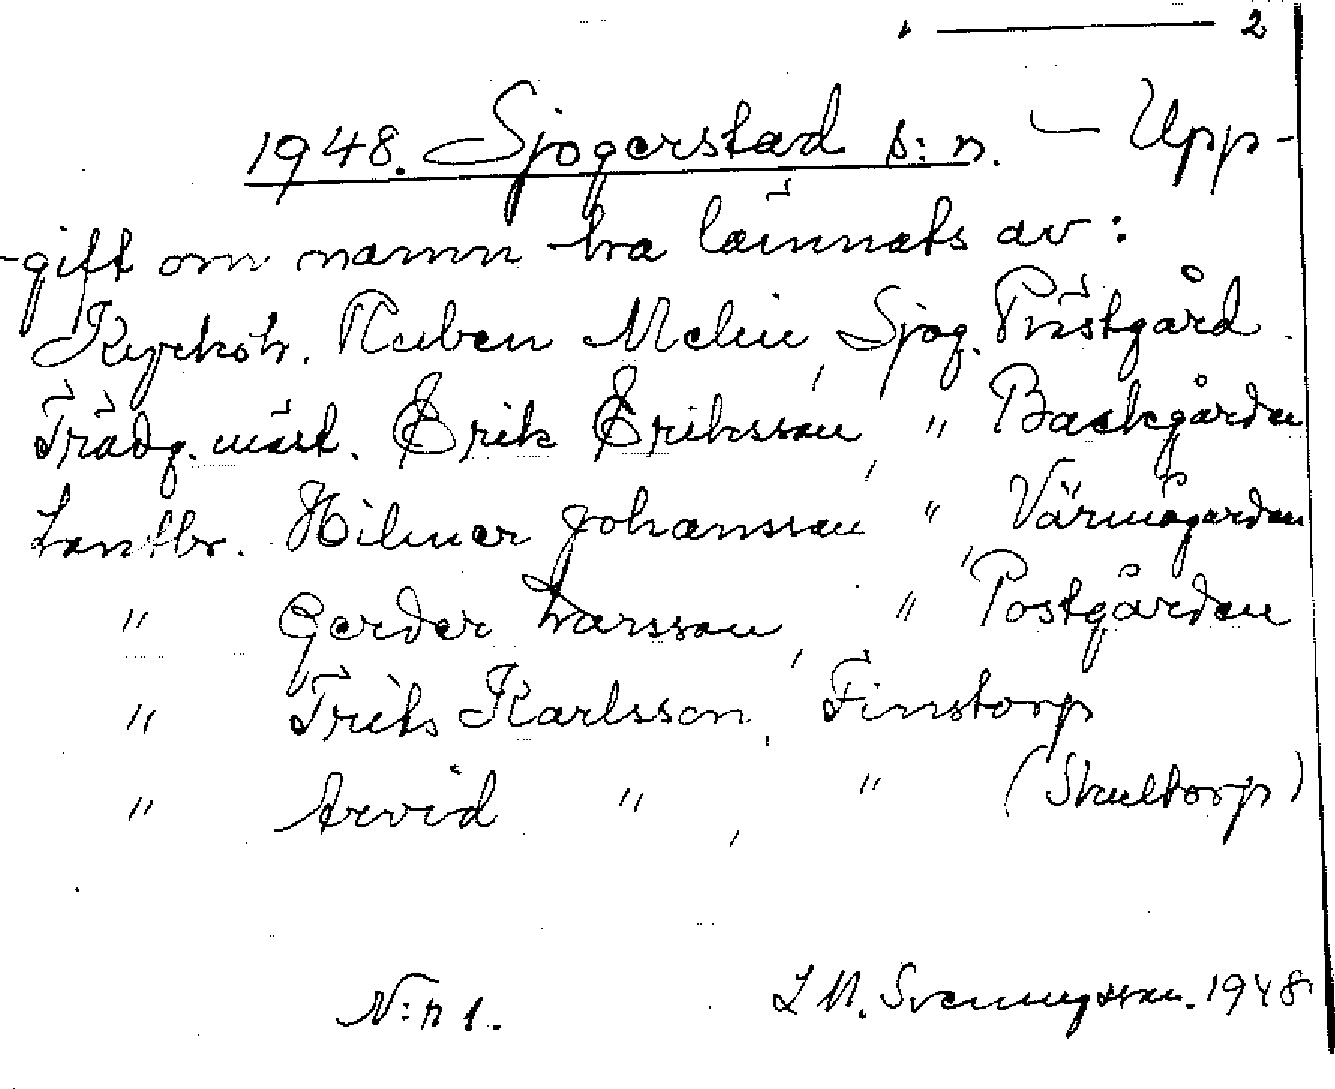 2
1948. Sjogerstad s:n. — Upp-
-gift om namn ha lämnats av:
Kyrkoh. Ruben Melin, Sjog. Prästgård.
Trädg. mäst. Erik Eriksson, " Backgården
Lantbr. Hilmer Johansson, " Värmågården
" Gerder Larsson, " Postgården
" Frits Karlsson, Finstorp
" Arvid ", " (Skultorp)
N:r 1. L M. Svenungsson. 1948